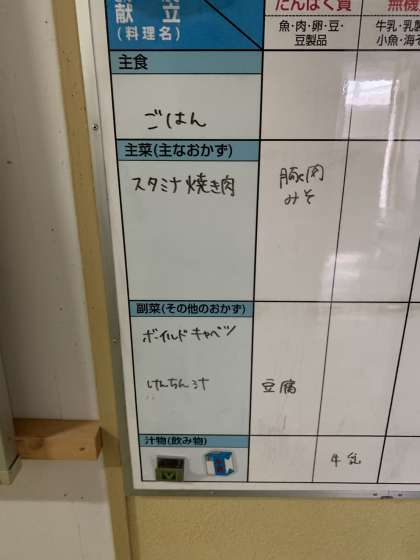 献立
(料理名)
たんぱく質
魚・肉・卵・豆・
豆製品
無機
牛乳・乳製
小魚・海そ
主食
ごはん
主菜(主なおかず)
スタミナ焼き肉
豚肉
みそ
副菜(その他のおかず)
ボイルドキャベツ
けんちん汁
豆腐
汁物(飲み物)
牛乳